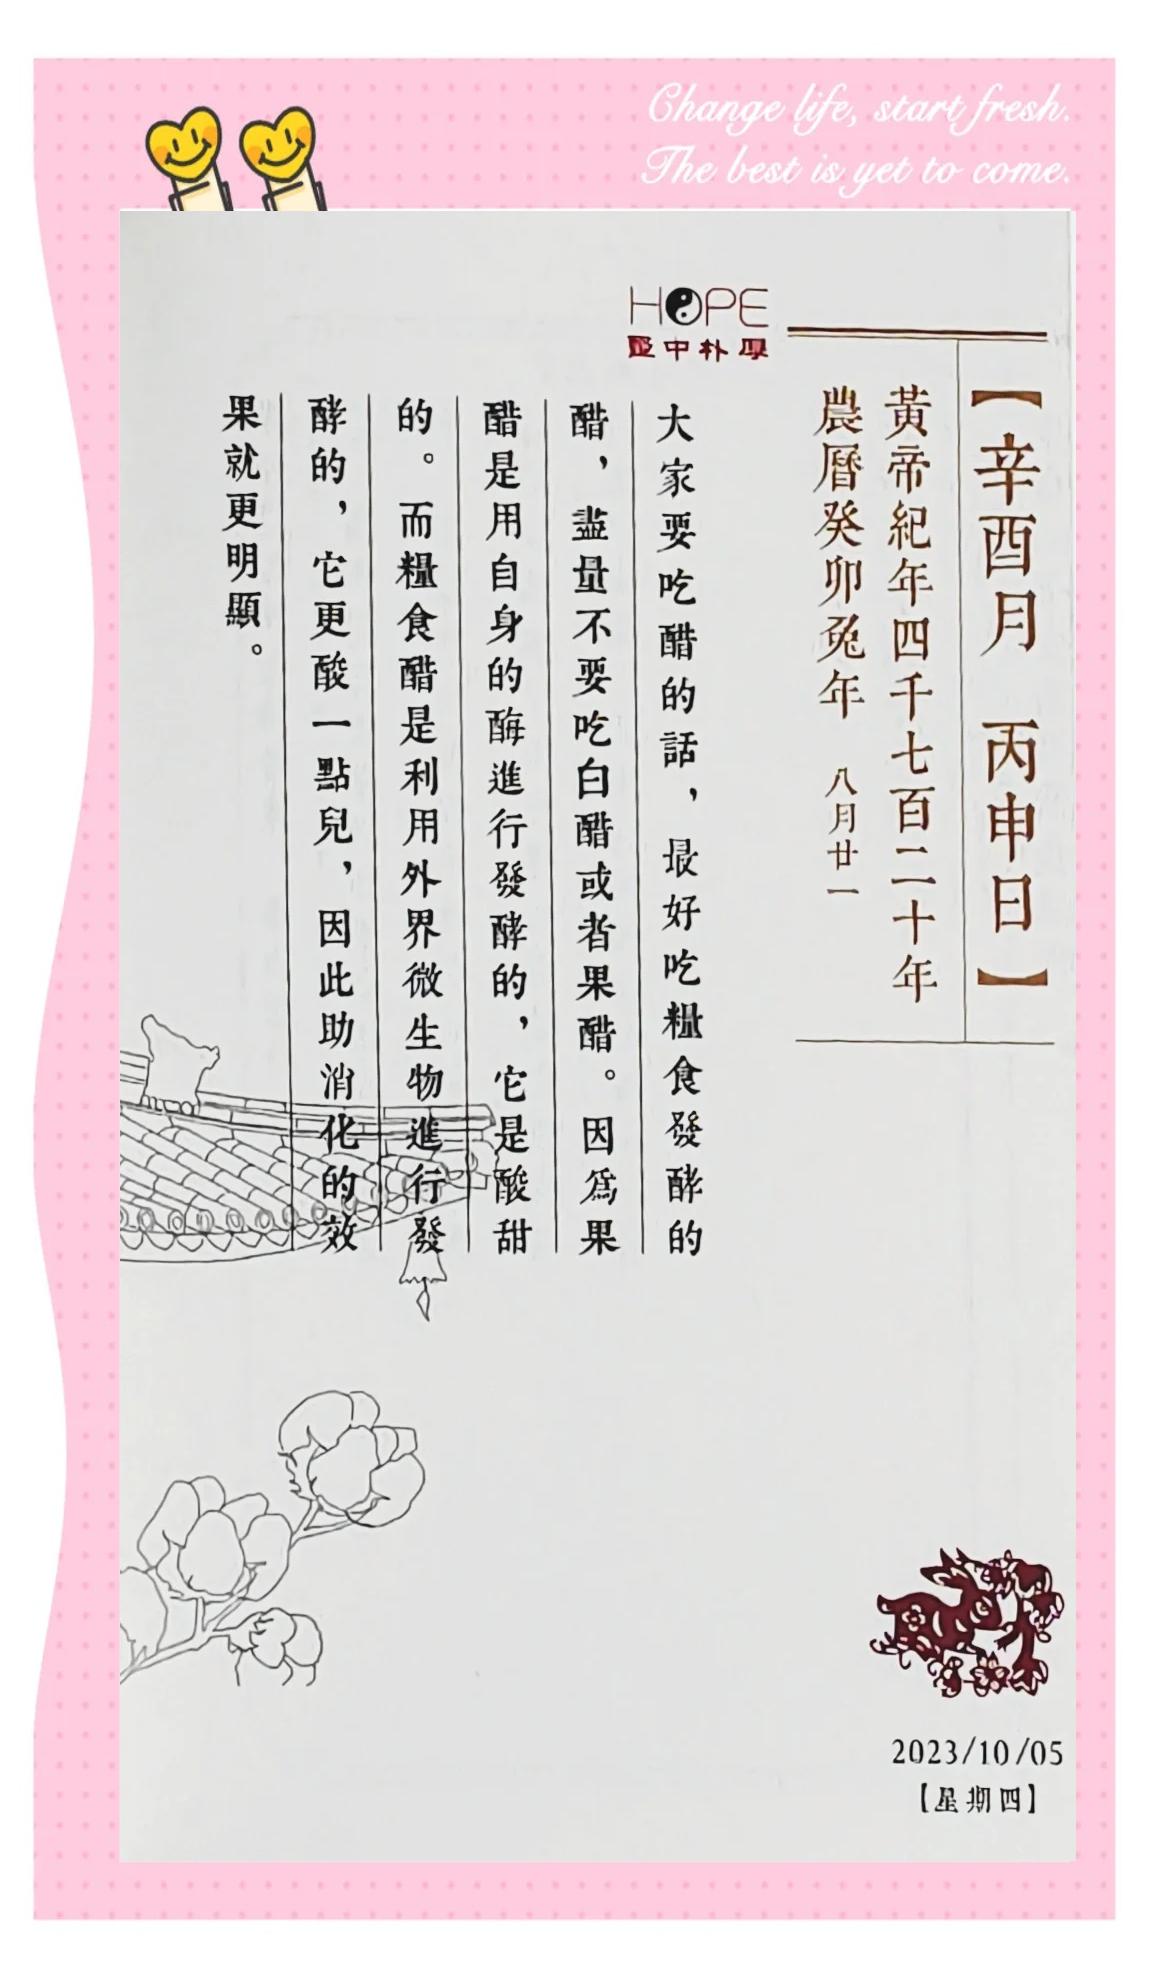 Change life, start fresh.
The best is yet to come.
HOPE
厚朴中醫
【辛酉月 丙申日】
黃帝紀年四千七百二十年
農曆癸卯兔年 八月廿一
大家要吃醋的話，最好吃糧食發酵的
醋，盡量不要吃白醋或者果醋。因爲果
醋是用自身的酶進行發酵的，它是酸甜
的。而糧食醋是利用外界微生物進行發
酵的，它更酸一點兒，因此助消化的效
果就更明顯。
2023/10/05
【星期四】